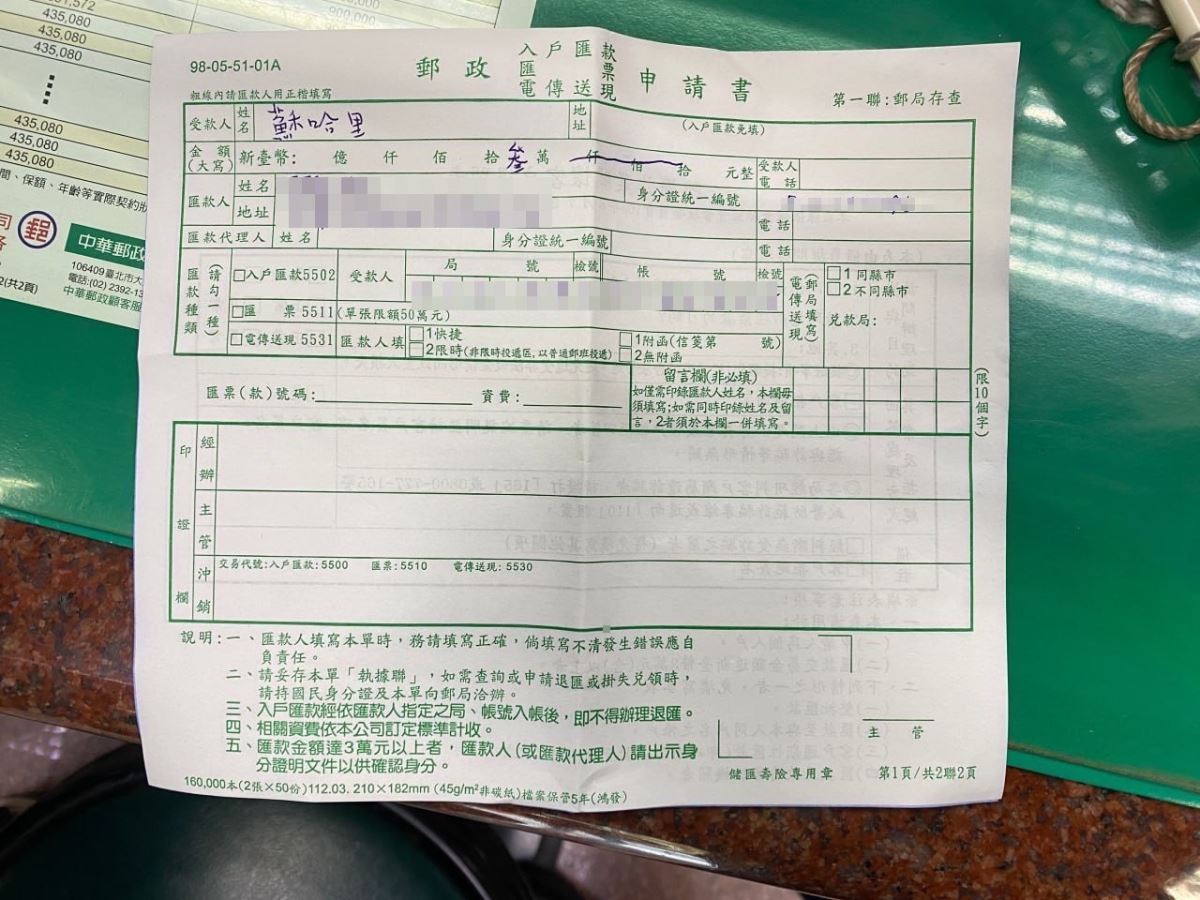 81,572
435,080
435,080
435,080
900,000
435,080
435,080
435,080
間、保額、年齡等實際契約狀
郵
中華郵政
106409臺北市大
電話:(02) 2392-13
中華郵政顧客服
2(共2頁)
98-05-51-01A
郵政 入戶匯款 匯票 電傳送現 申請書
粗線內請匯款人用正楷填寫
第一聯:郵局存查
受款人 姓名 蘇哈里 地址 (入戶匯款免填)
金額(大寫) 新臺幣: 億 仟 佰 拾 叁 萬 仟 佰 拾 元整 受款人電話
匯款人 姓名 身分證統一編號
地址 電話
匯款代理人 姓名 身分證統一編號 電話
匯款種類 (請勾一種) □入戶匯款5502 受款人 局 號 檢號 帳 號 檢號
□匯 票 5511 (單張限額50萬元)
□電傳送現 5531 匯款人填 □1快捷 □2限時(非限時投遞區,以普通郵班投遞) □1附函(信箋第 號) □2無附函
電傳送現 (郵局填寫) □1同縣市 □2不同縣市 兌款局:
匯票(款)號碼: 資費:
留言欄(非必填)
如僅需印錄匯款人姓名,本欄毋
須填寫;如需同時印錄姓名及留
言,2者須於本欄一併填寫。
(限10個字)
印證欄
經辦
主管
沖銷 交易代號:入戶匯款:5500 匯票:5510 電傳送現:5530
說明:一、匯款人填寫本單時,務請填寫正確,倘填寫不清發生錯誤應自
負責任。
二、請妥存本單「執據聯」,如需查詢或申請退匯或掛失兌領時,
請持國民身分證及本單向郵局洽辦。
三、入戶匯款經依匯款人指定之局、帳號入帳後,即不得辦理退匯。
四、相關資費依本公司訂定標準計收。
五、匯款金額達3萬元以上者,匯款人(或匯款代理人)請出示身
分證明文件以供確認身分。
主 管
儲匯壽險專用章 第1頁/共2聯2頁
160,000本(2張×50份)112.03. 210×182mm (45g/m²非碳紙)檔案保管5年(鴻發)